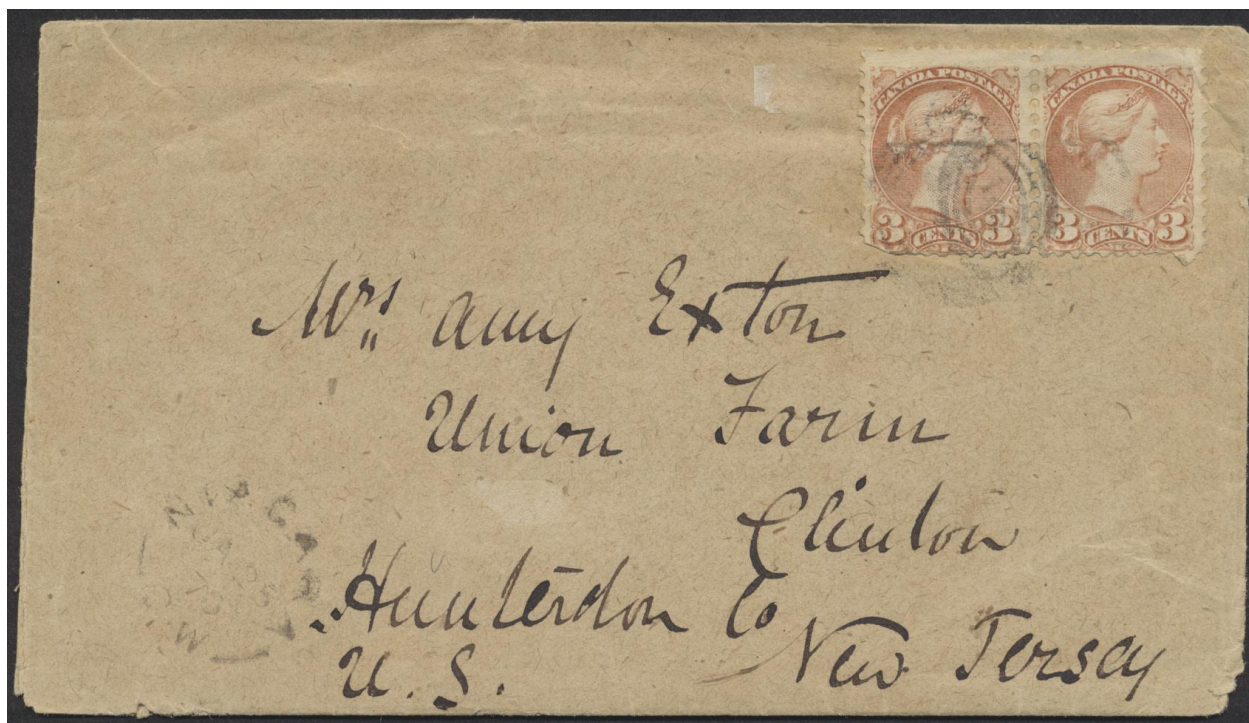 CANADA POSTAGE CANADA POSTAGE
3 CENTS 3 3 CENTS 3
Mrs Amy Exton
Union Farm
Clinton
Hunterdon Co
New Jersey
U. S.